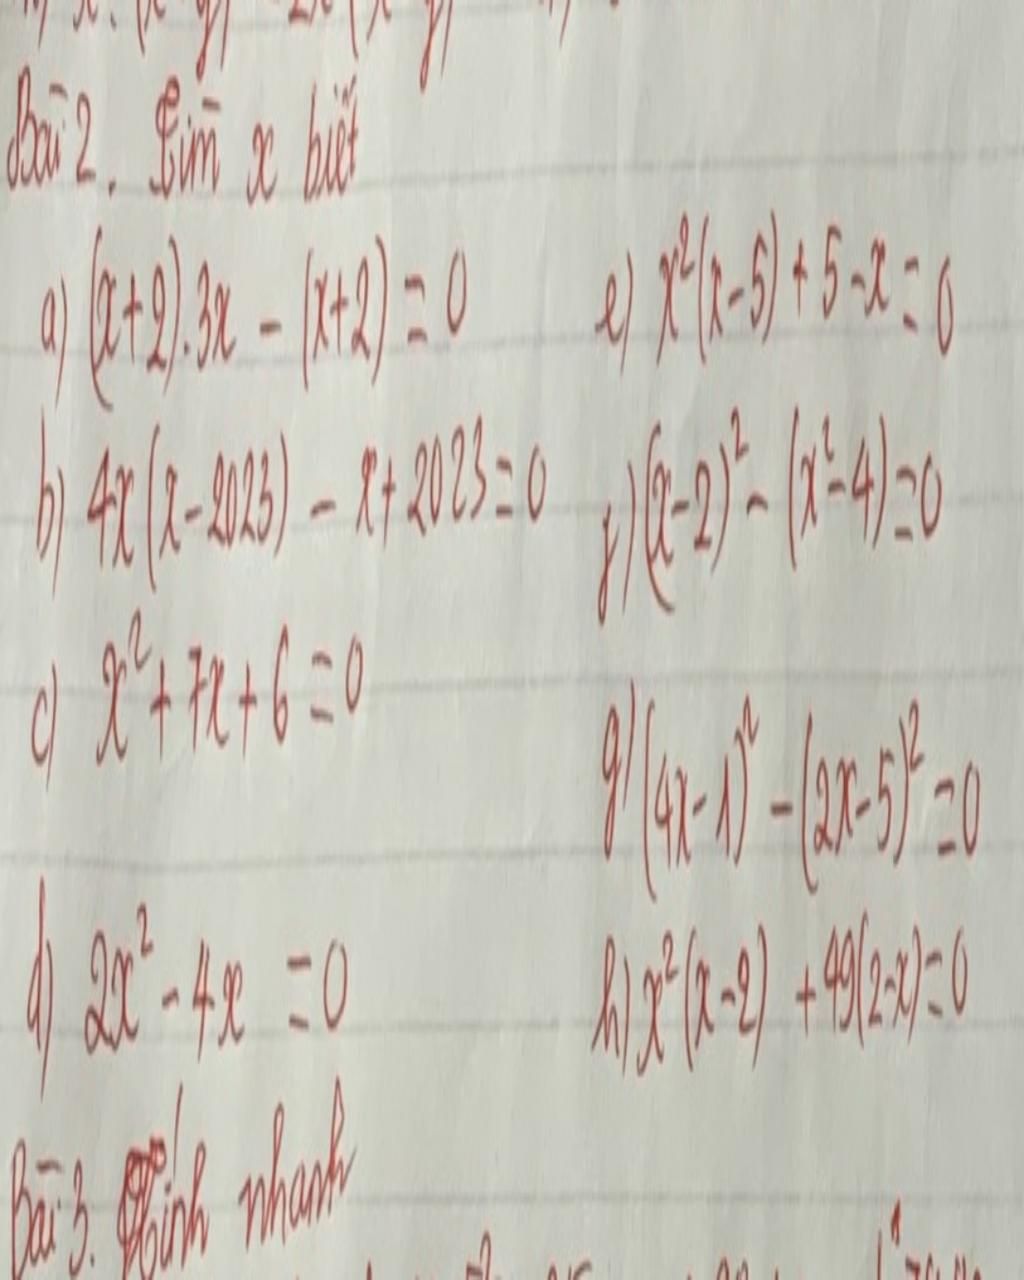 Bài 2. Tìm x biết
a) (x+2).3x - (x+2) = 0
b) 4x(x-2023) - x+2023=0
c) x²+7x+6=0
d) 2x²-4x =0
e) x²(x-5)+5-x=0
f) (x-2)² - (x²-4)=0
g) (4x-1)² - (2x-5)²=0
h) x²(x-2) +49(2-x)=0
Bài 3. Tính nhanh